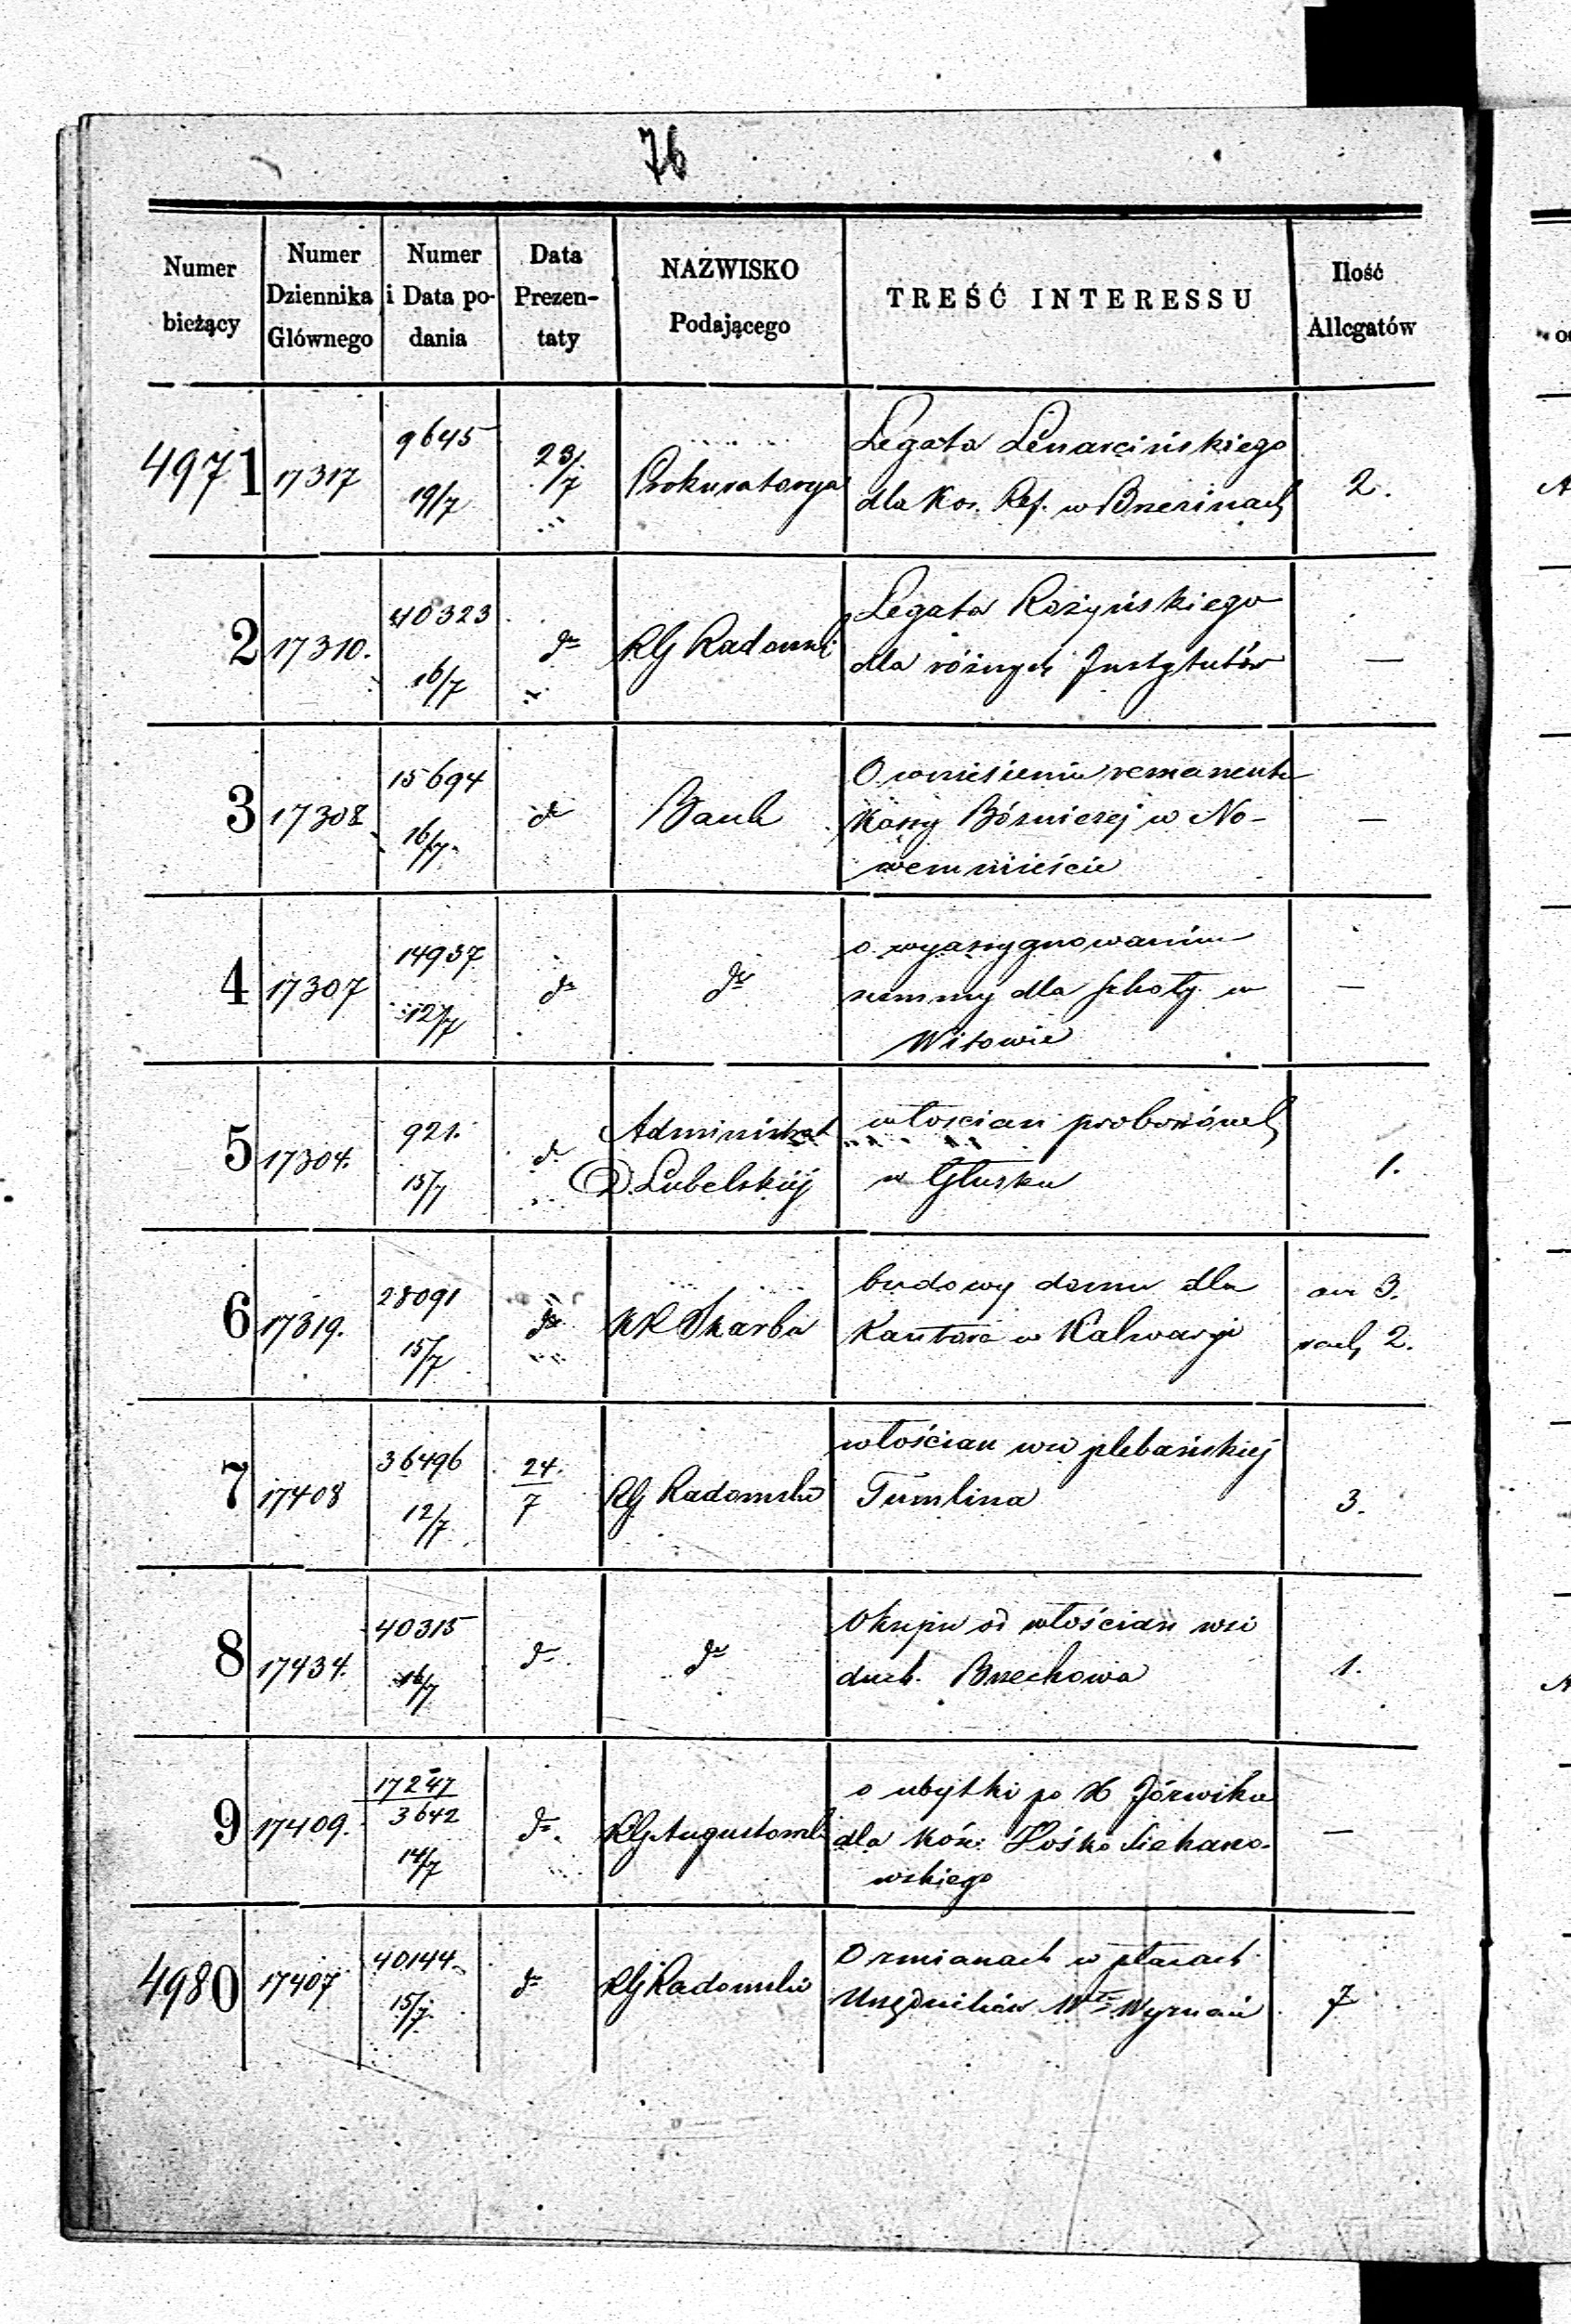 76
Numer bieżący | Numer Dziennika Głównego | Numer i Data podania | Data Prezentaty | NAZWISKO Podającego | TREŚĆ INTERESSU | Ilość Allegatów
4971 | 17317 | 9645 19/7 | 23/7 | Prokuratorya | Legata Lenarcińskiego dla Koś. Ref. w Brzezinach | 2.
2 | 17310. | 40323 16/7 | do | RG Radomski | Legata Rożyńskiego dla różnych Instytutów | —
3 | 17308 | 15694 16/7 | do | Bank | O wniesieniu remanentu Kassy Bóżniczej w Nowemmieście | —
4 | 17307 | 14937 12/7 | do | do | o wyassygnowaniu summy dla szkoły w Witowie | —
5 | 17304. | 921. 15/7 | do | Administrat D. Lubelskiej | włościan proboszczów w Głusku | 1.
6 | 17319. | 28091 15/7 | do | KR Skarbu | budowy domu dla Kantora w Kalwaryi | an 3. rach 2.
7 | 17408 | 36496 12/7 | 24/7 | RG Radomski | włościan wsi plebańskiej Tumlina | 3.
8 | 17434. | 40315 16/7 | do | do | Okupu od włościan wsi duch. Brzechowa | 1.
9 | 17409. | 17247 3642 14/7 | do | RG Augustowski | o ubytki po X Józwiku dla Koś: | —
4980 | 17407 | 40144. 15/7. | do | RG Radomski | O zmianach w płacach Urzędników Wu Wyznań | 7